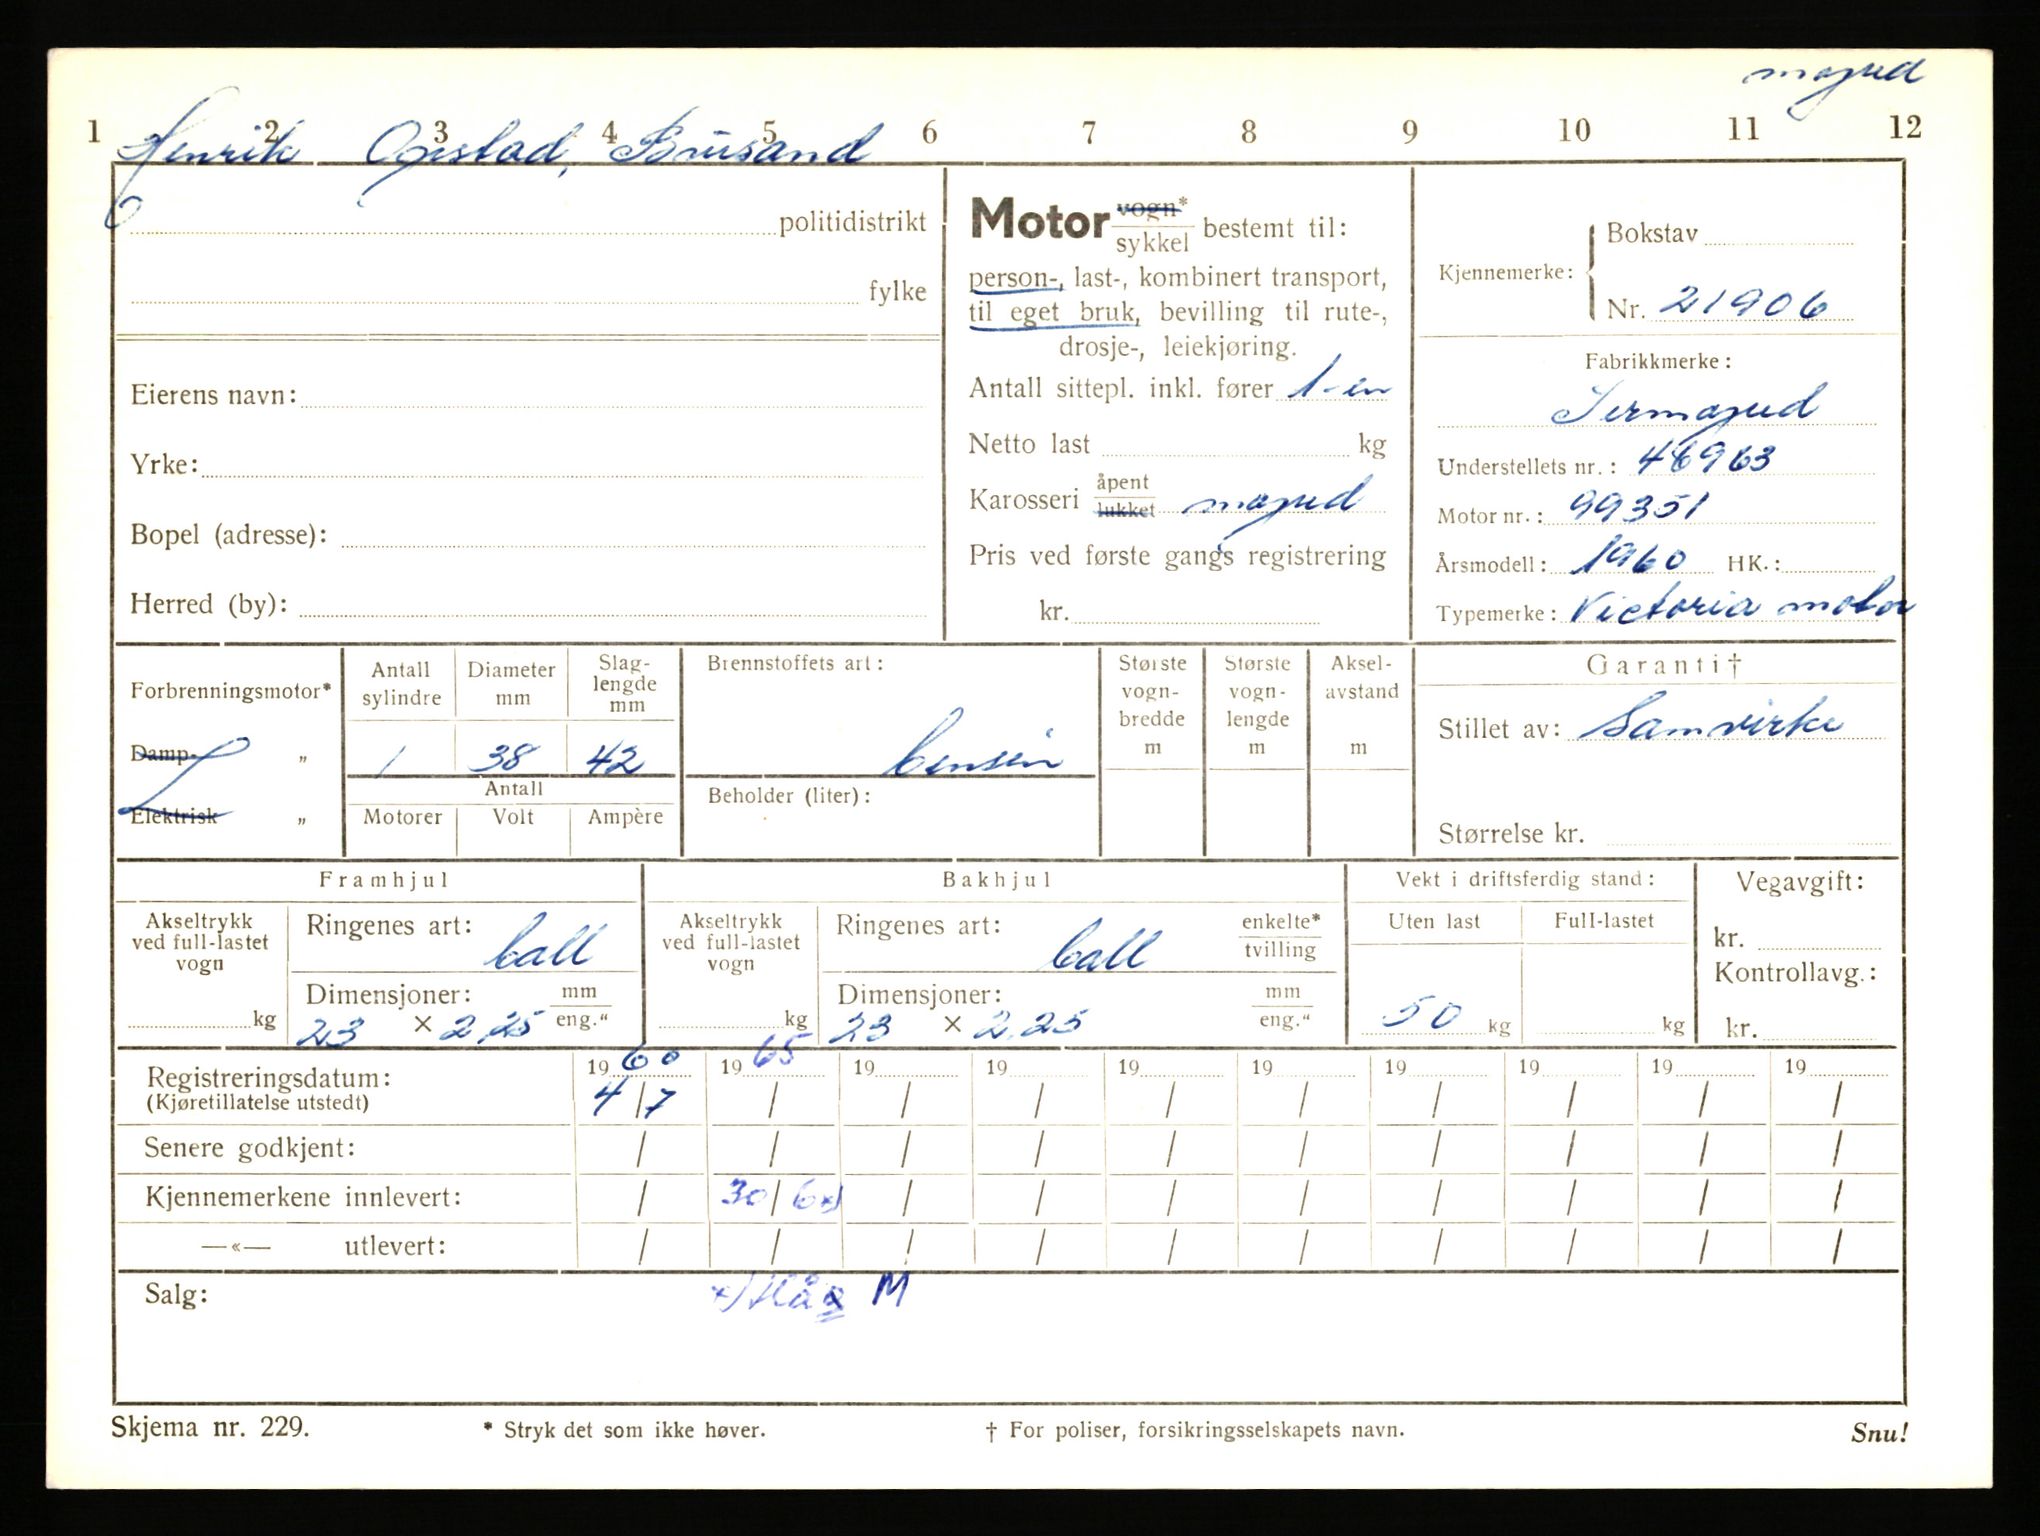 moped
1 2 3 4 5 6 7 8 9 10 11 12
Henrik Ogstad, Brusand
politidistrikt
fylke
Eierens navn:
Yrke:
Bopel (adresse):
Herred (by):
Motor vogn*
sykkel bestemt til:
person-, last-, kombinert transport,
til eget bruk, bevilling til rute-,
drosje-, leiekjøring.
Antall sittepl. inkl. fører 1-en
Netto last kg
Karosseri åpent
lukket moped
Pris ved første gangs registrering
kr.
Kjennemerke: Bokstav
Nr. 21906
Fabrikkmerke:
Sermoped
Understellets nr.: 46963
Motor nr.: 99351
Årsmodell: 1960 HK.:
Typemerke: Victoria motor
Forbrenningsmotor*
Damp- „
Elektrisk „
Antall sylindre
Diameter mm
Slag-
lengde
mm
1 38 42
Antall
Motorer Volt Ampère
Brennstoffets art:
bensin
Beholder (liter):
Største
vogn-
bredde
m
Største
vogn-
lengde
m
Aksel-
avstand
m
Garanti†
Stillet av: Samvirke
Størrelse kr.
Framhjul
Akseltrykk
ved full-lastet
vogn
kg
Ringenes art: ball
Dimensjoner: mm
23 × 2,25 eng."
Bakhjul
Akseltrykk
ved full-lastet
vogn
kg
Ringenes art: ball enkelte*
tvilling
Dimensjoner: mm
23 × 2,25 eng."
Vekt i driftsferdig stand:
Uten last Full-lastet
50 kg kg
Vegavgift:
kr.
Kontrollavg.:
kr.
Registreringsdatum:
(Kjøretillatelse utstedt)
1960 1965 19 19 19 19 19 19 19 19
4/7 / / / / / / / / /
Senere godkjent: / / / / / / / / / /
Kjennemerkene innlevert: / 30/6x) / / / / / / / /
—«— utlevert: / / / / / / / / / /
Salg:
x) Hå M
Skjema nr. 229.
* Stryk det som ikke høver.
† For poliser, forsikringsselskapets navn.
Snu!